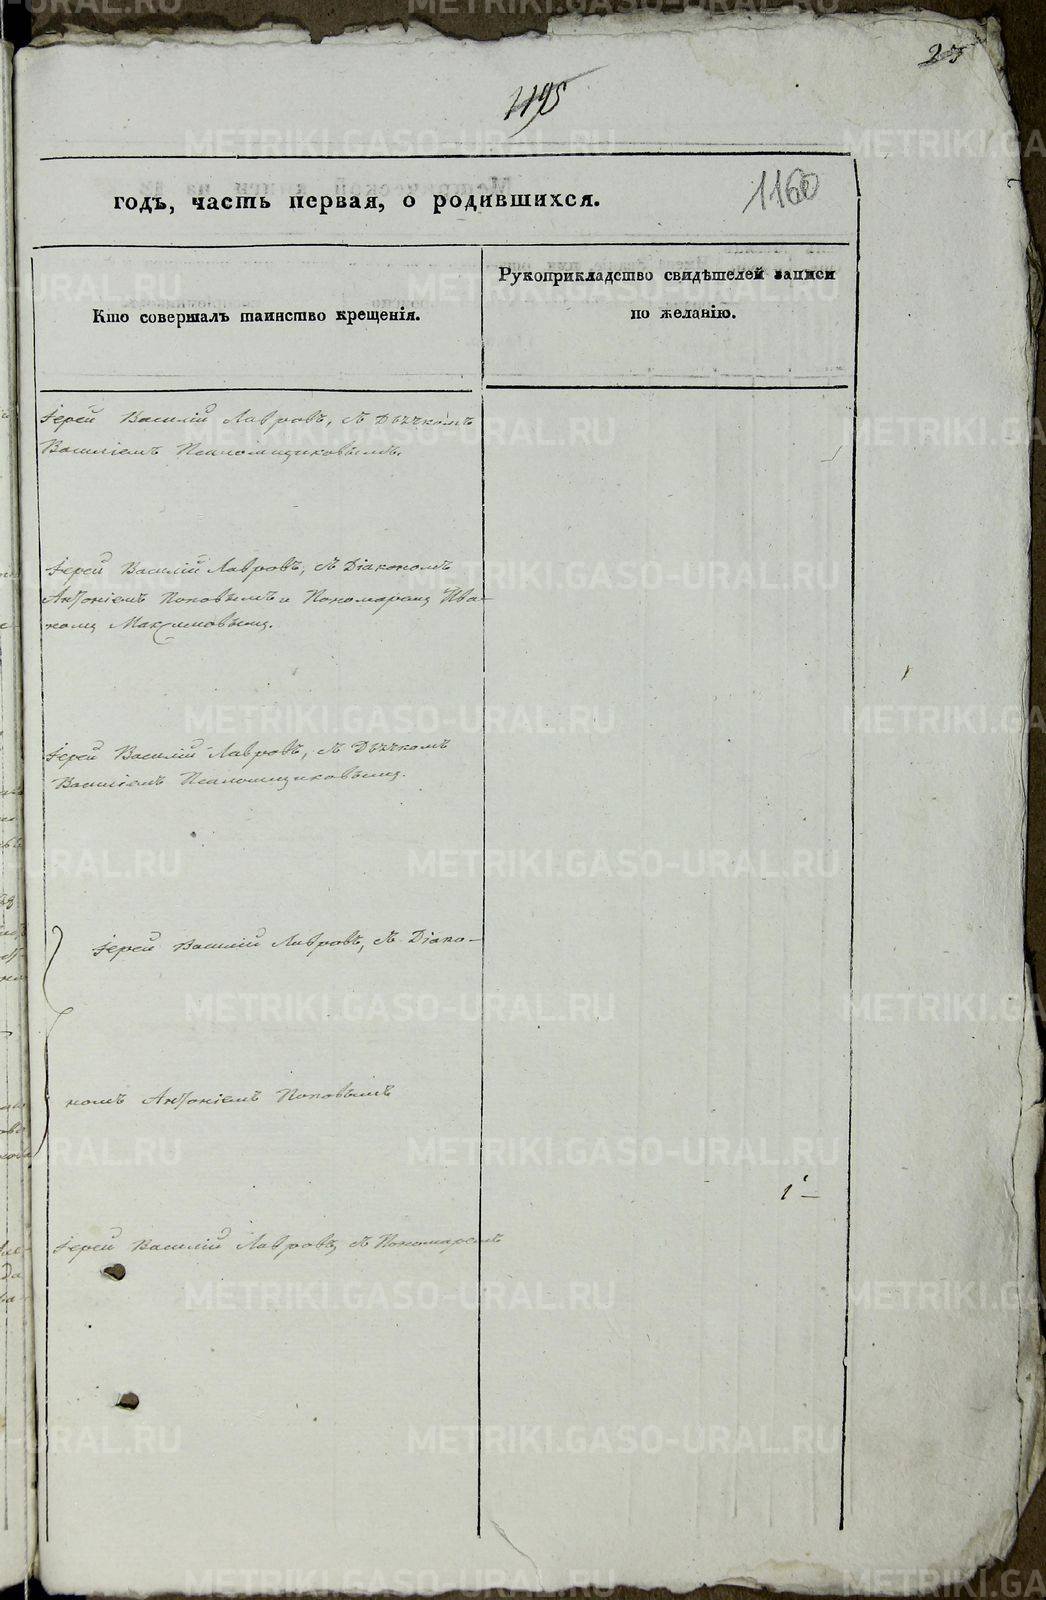 23
1195
1160
годъ, часть первая, о родившихся.
Кто совершалъ таинство крещенія.
Рукоприкладство свидѣтелей записи
по желанію.
Іерей Василій Лавровъ, съ Дьячкомъ
Василіемъ Псаломщиковымъ.
Іерей Василій Лавровъ, съ Діакономъ
Антоніемъ Поповымъ и Пономаремъ Ива-
номъ Максимовымъ.
Іерей Василій Лавровъ, съ Дьячкомъ
Василіемъ Псаломщиковымъ.
Іерей Василій Лавровъ, съ Діако-
номъ Антоніемъ Поповымъ
Іерей Василій Лавровъ съ Пономаремъ
METRIKI.GASO-URAL.RU